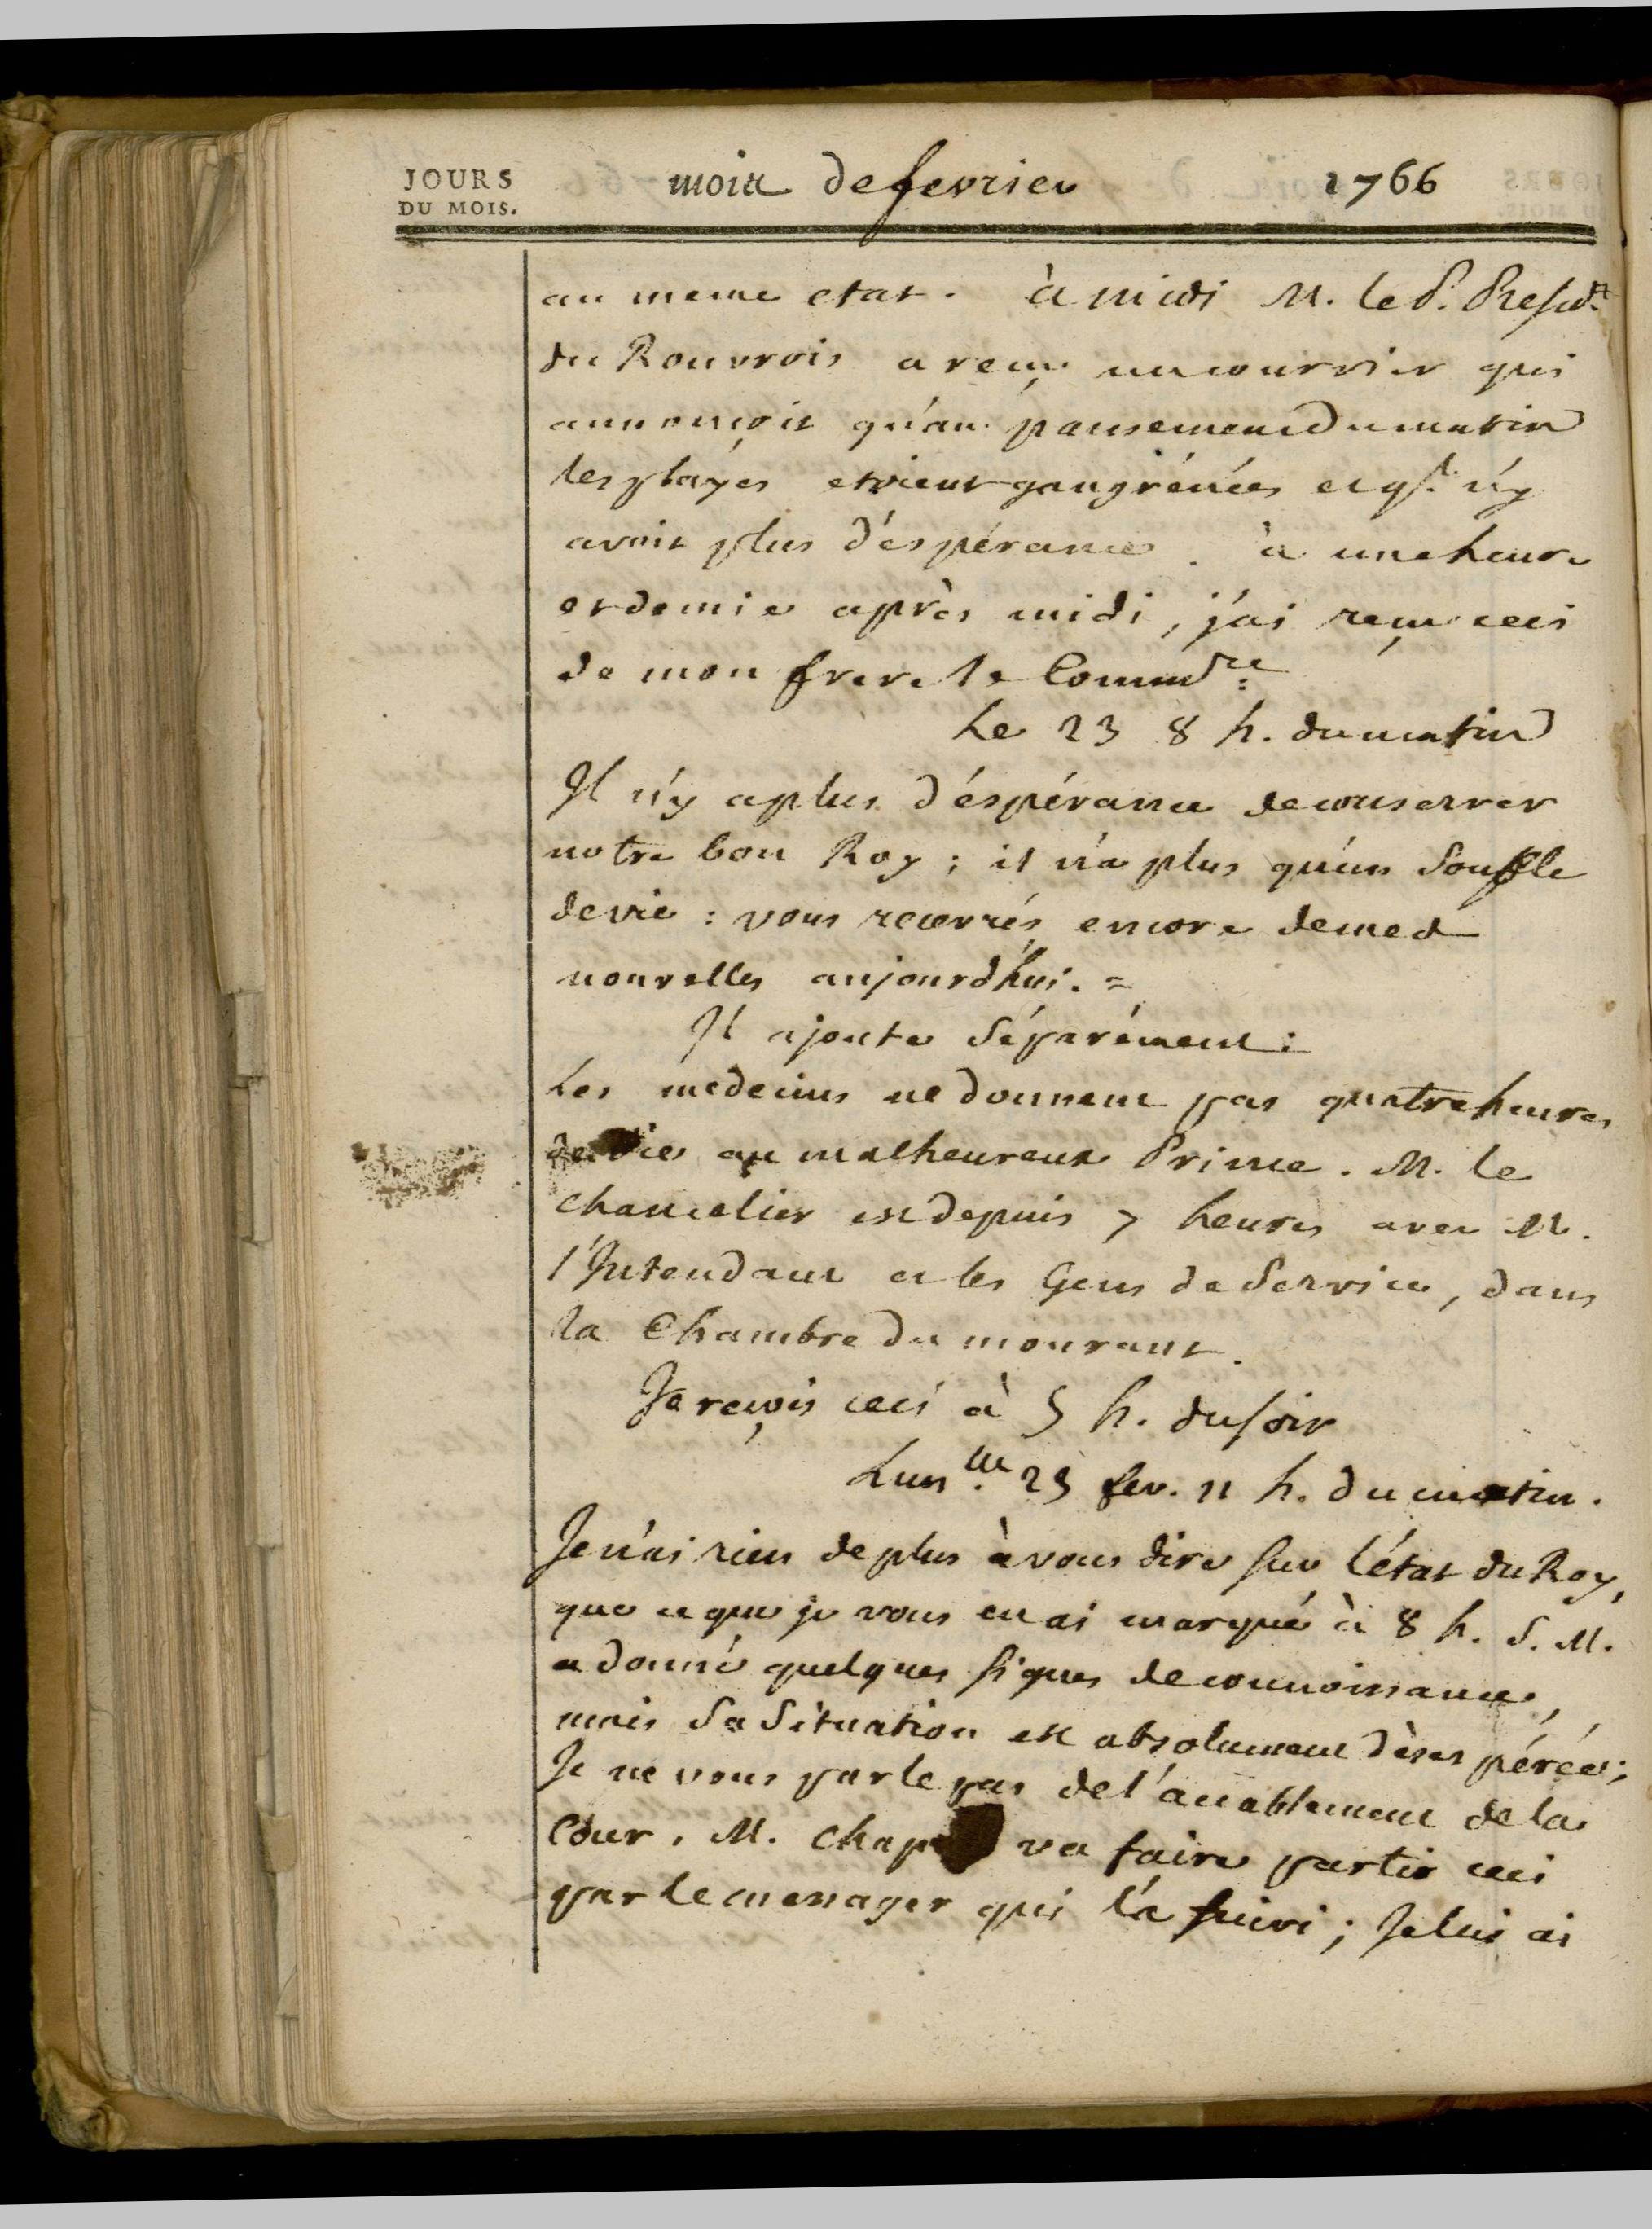 JOURS
DU MOIS.
mois de fevrier 1766
au meme etat. à midi M. le P. Presidt
du Rouvrois a reçu un courrier qui
annonçoit qu'au pansement du matin
les playes etoient gangrénées et ql n'y
avoit plus d'éspérance. à une heure
et demie après midi, j'ai reçu ceci
de mon frere le Commdre
Le 23 8 h. du matin
Il n'y a plus d'éspérance de conserver
notre bon Roy; il n'a plus qu'un Souffle
de vie: vous recevrés encore de mes
nouvelles aujourd'hui. =
Il ajoute Séparément:
Les medecins ne donnent pas quatre heures
de vie au malheureux Prince. M. le
Chancelier est depuis 7 heures avec M.
l'Intendant et les Gens de Service, dans
la Chambre du mourant.
Je reçois ceci à 5 h. du soir
Lunlle 23 fev. 11 h. du matin.
Je n'ai rien de plus à vous dire sur l'état du Roy,
que ce que je vous en ai marqué à 8 h. S. M.
a donné quelques signes de connoissance,
mais Sa Situation est absolument désespérée;
Je ne vous parle pas de l'accablement de la
Cour. M. va faire partir ceci
par le messager qui l'a suivi; Je lui ai